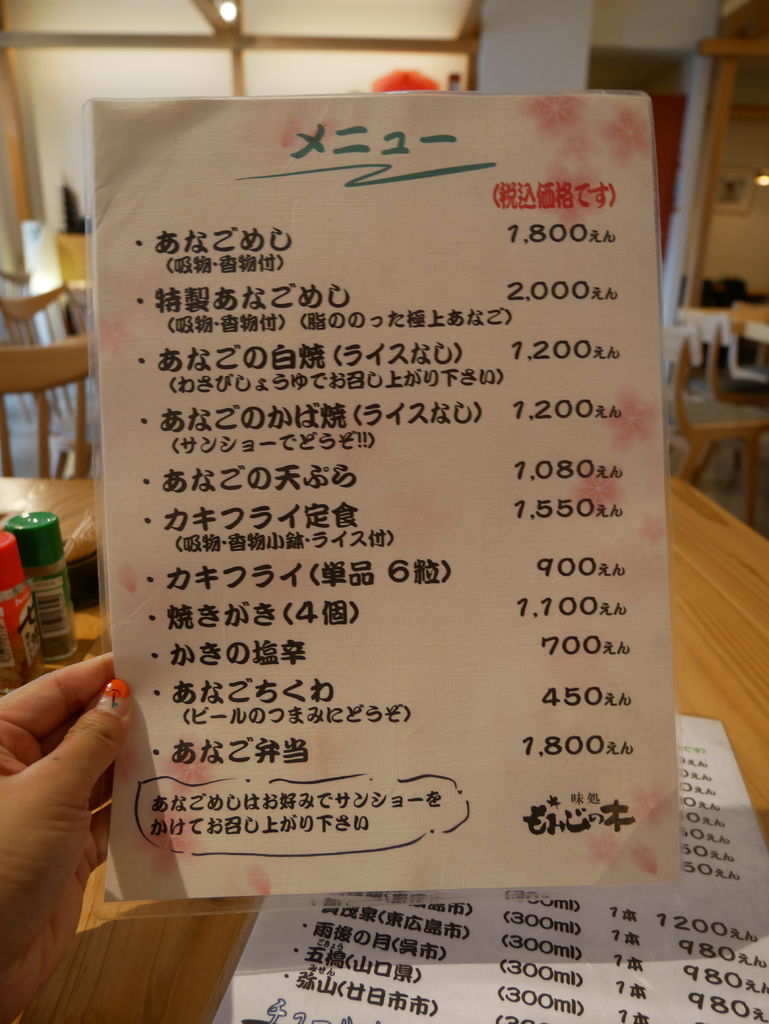 メニュー
(税込価格です)
・あなごめし 1,800えん
(吸物・香物付)
・特製あなごめし 2,000えん
(吸物・香物付) (脂ののった極上あなご)
・あなごの白焼(ライスなし) 1,200えん
(わさびしょうゆでお召し上がり下さい)
・あなごのかば焼(ライスなし) 1,200えん
(サンショーでどうぞ!!)
・あなごの天ぷら 1,080えん
・カキフライ定食 1,550えん
(吸物・香物小鉢・ライス付)
・カキフライ(単品 6粒) 900えん
・焼きがき(4個) 1,100えん
・かきの塩辛 700えん
・あなごちくわ 450えん
(ビールのつまみにどうぞ)
・あなご弁当 1,800えん
あなごめしはお好みでサンショーを
かけてお召し上がり下さい
味処
もみじの木
です)
えん
0えん
0えん
0えん
50えん
50えん
50えん
(300ml) 1本 1200えん
賀茂泉(東広島市) (300ml) 1本 980えん
・雨後の月(呉市) (300ml) 1本 980えん
ごきょう
・五橋(山口県) (300ml) 1本 980えん
みせん
・弥山(廿日市市) (300ml) 1本 980